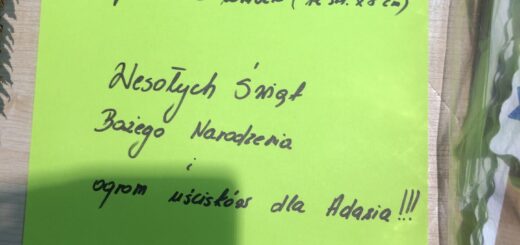 (12 szt. x 8 cm)
Wesołych Świąt
Bożego Narodzenia
i
ogrom uścisków dla Adasia!!!